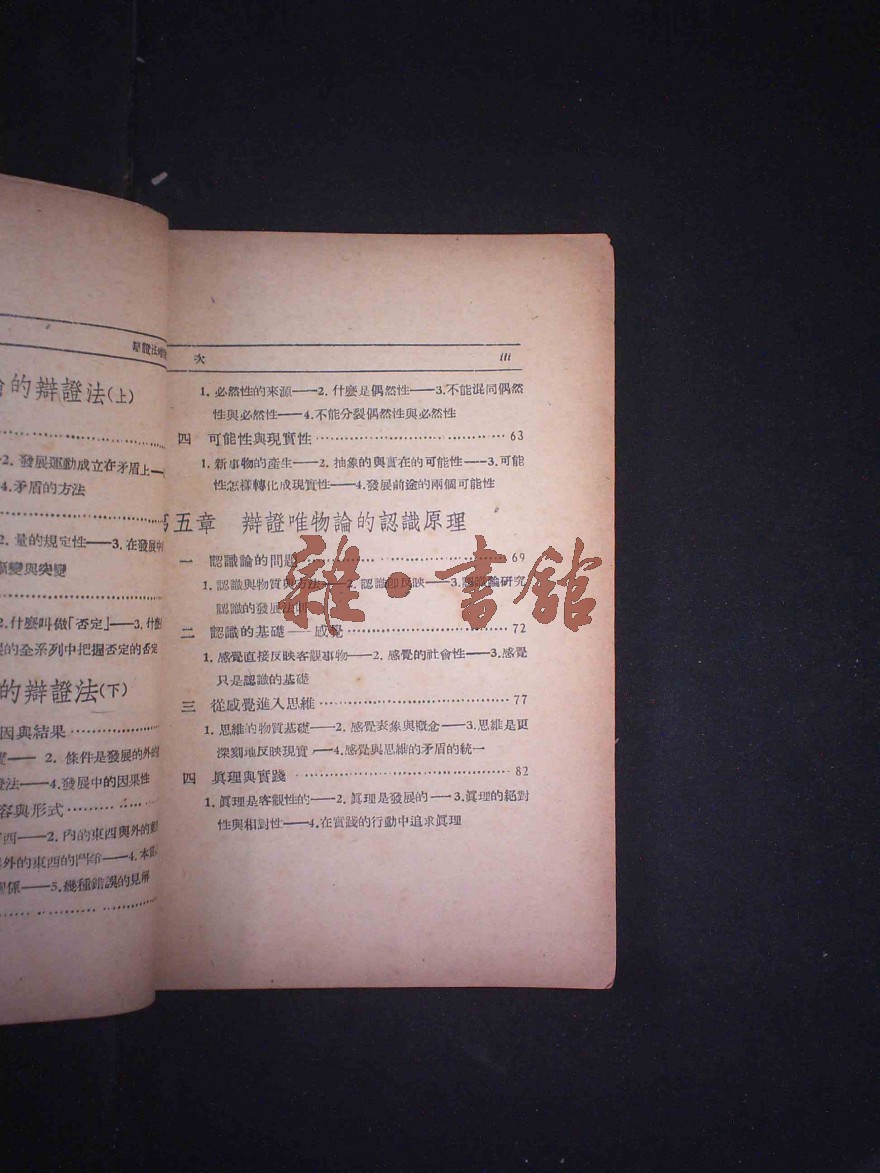 的辯證法(上)
2. 發展運動成立在矛盾上
4.矛盾的方法
2. 量的規定性——3. 在發展中
漸變與突變
2.什麼叫做「否定」——3. 什麼
的全系列中把握否定的否定
的辯證法(下)
因與結果
2. 條件是發展的外的
證法——4.發展中的因果性
容與形式
2. 內的東西與外的
與外的東西的鬥爭——4.本
係——5.幾種錯誤的見解
次 iii
1. 必然性的來源——2. 什麼是偶然性——3.不能混同偶然
性與必然性——4.不能分裂偶然性與必然性
四 可能性與現實性 63
1. 新事物的產生——2. 抽象的與實在的可能性——3.可能
性怎樣轉化成現實性——4.發展前途的兩個可能性
第五章 辯證唯物論的認識原理
一 認識論的問題 69
1. 認識與物質與方法——2. 認識即反映——3.認識論研究
認識的發展法則
二 認識的基礎——感覺 72
1. 感覺直接反映客觀事物——2. 感覺的社會性——3.感覺
只是認識的基礎
三 從感覺進入思維 77
1. 思維的物質基礎——2. 感覺表象與概念——3.思維是更
深刻地反映現實——4.感覺與思維的矛盾的統一
四 眞理與實踐 82
1. 眞理是客觀性的——2. 眞理是發展的——3.眞理的絕對
性與相對性——4.在實踐的行動中追求眞理
雜·書館